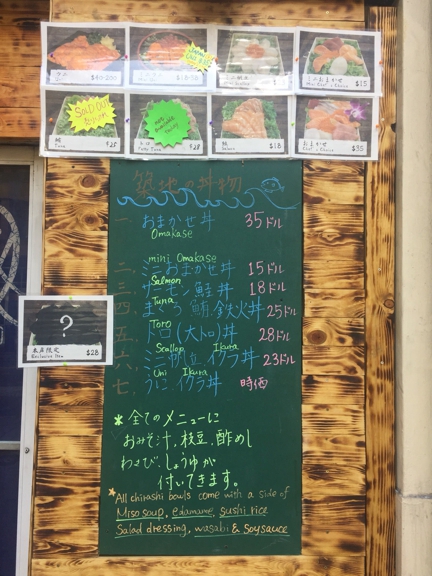 ウニ
$80-200
ミニおまかせ
Mini Chef's Choice
$15
SOLD OUT
鮪
Tuna
$25
トロ
Fatty Tuna
$28
鮭
Salmon
$18
おまかせ
Chef's Choice
$35
築地の丼物
一、おまかせ丼 35ドル
Omakase
mini Omakase
二、ミニおまかせ丼 15ドル
Salmon
三、サーモン 鮭丼 18ドル
Tuna
四、まぐろ 鮪 鉄火丼 25ドル
Toro
五、トロ(大トロ)丼 28ドル
Scallop Ikura
六、ミニ帆立イクラ丼 23ドル
Uni Ikura
七、うに、イクラ丼 時価
?
本店限定
Exclusive Item
$28
*全てのメニューに
おみそ汁、枝豆、酢めし
わさび、しょうゆが
付いてきます。
*All chirashi bowls come with a side of
Miso soup, edamame, sushi rice
Salad dressing, wasabi & Soysauce